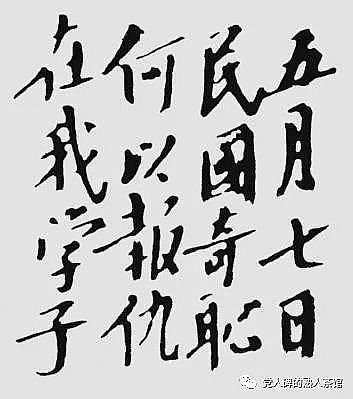 五月七日
民國奇恥
何以报仇
在我学子
党人碑的熟人茶馆